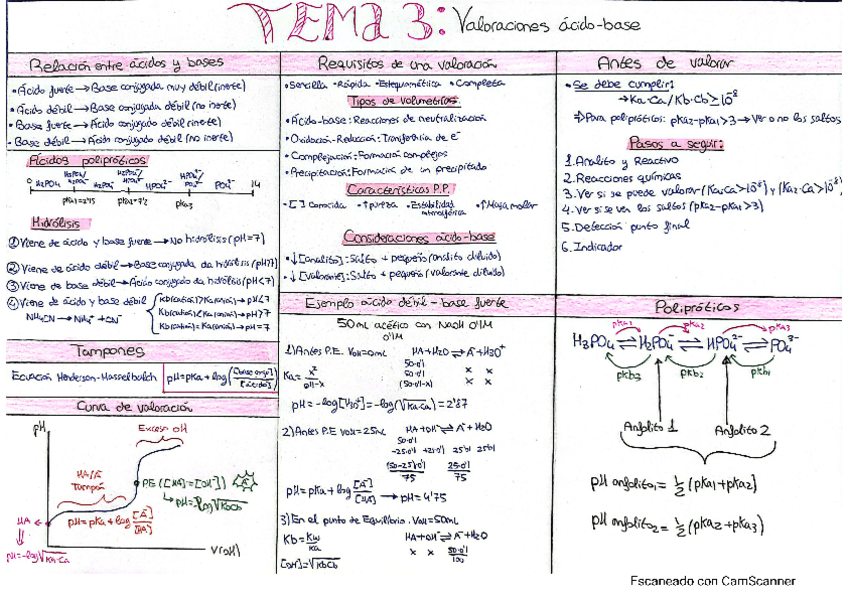 TEMA 3: Valoraciones ácido-base
Relación entre ácidos y bases
• Ácido fuerte → Base conjugada muy débil (inerte)
• Ácido débil → Base conjugada débil (no inerte)
• Base fuerte → Ácido conjugado débil (inerte)
• Base débil → Ácido conjugado débil (no inerte)
Ácidos polipróticos
0 H3PO4 H3PO4/H2PO4- H2PO4- H2PO4-/HPO4 2- HPO4 2- HPO4 2-/PO4 3- PO4 3- 14
pKa1=2'15 pKa2=7'2 pKa3
Hidrólisis
① Viene de ácido y base fuerte → No hidrólisis (pH=7)
② Viene de ácido débil → Base conjugada da hidrólisis (pH>7)
③ Viene de base débil → Ácido conjugado da hidrólisis (pH<7)
④ Viene de ácido y base débil
NH4CN → NH4+ + CN-
Kb(catión)>Ka(anión) → pH<7
Kb(catión)<Ka(anión) → pH>7
Kb(catión)=Ka(anión) → pH=7
Tampones
Ecuación Henderson-Hasselbalch pH=pKa + log([base conj]/[ácido])
Curva de valoración
pH
Exceso OH-
HA/A-
Tampón
P.E ([HA]=[OH-]) A-
→ pH=-log√KbCb
HA
pH=pKa+log [A-]/[HA]
pH=-log√Ka·Ca
V(OH)
Requisitos de una valoración
• Sencilla • Rápida • Estequiométrica • Completa
Tipos de volumetrías
• Ácido-base: Reacciones de neutralización
• Oxidación-Reducción: Transferencia de e-
• Complejación: Formación complejos
• Precipitación: Formación de un precipitado
Características P.P.
• [ ] Conocida • ↑pureza • Estabilidad atmosférica • ↑Masa molar
Consideraciones ácido-base
• ↓[analito]: Salto + pequeño (analito diluido)
• ↓[Valorante]: Salto + pequeño (valorante diluido)
Ejemplo ácido débil - base fuerte
50mL acético con NaOH 0'1M
0'1M
1) Antes P.E. VOH=0mL HA+H2O ⇌ A-+H3O+
50·0'1
50·0'1 x x
(50·0'1-x) x x
Ka= x²/
pH=-log[H3O+]=-log(√Ka·Ca)=2'87
2) Antes P.E VOH=25mL HA+OH- ⇌ A-+H2O
50·0'1
-25·0'1 +25·0'1 25·0'1 25·0'1
(50-25)·0'1/75 25·0'1/75
pH=pKa+log [A-]/[HA] → pH=4'75
3) En el punto de Equilibrio. VOH=50mL
Kb=Kw/Ka HA+OH- ⇌ A-+H2O
x x 50·0'1/100
[OH-]=√KbCb
Antes de valorar
• Se debe cumplir:
→ Ka·Ca/Kb·Cb≥10^-8
⇒ Para polipróticos: pKa2-pKa1>3 → Ver o no los saltos
Pasos a seguir:
1. Analito y Reactivo
2. Reacciones químicas
3. Ver si se puede valorar (Ka1·Ca>10^-8) y (Ka2·Ca>10^-8)
4. Ver si se ven los saltos (pKa2-pKa1>3)
5. Detección punto final
6. Indicador
Polipróticos
pKa1 pKa2 pKa3
H3PO4 ⇌ H2PO4- ⇌ HPO4 2- ⇌ PO4 3-
pKb3 pKb2 pKb1
Anfolito 1 Anfolito 2
pH anfolito1 = 1/2 (pKa1+pKa2)
pH anfolito2 = 1/2 (pKa2+pKa3)
Escaneado con CamScanner